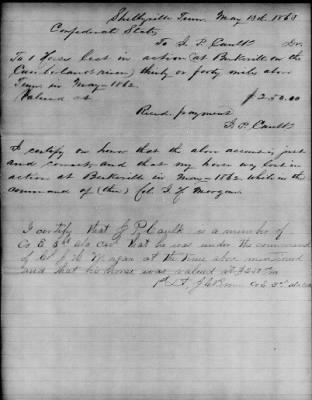 Shelbyville Tenn May 13th 1863
Confederate States
To J. P. Caulk Dr.
To 1 Horse lost in action (at Burksville on the
Cumberland river) thirty or forty miles above
Tenn in May - 1862.
Valued at $250.00
Recd. payment
J. P. Caulk
I certify on honor that the above account is just
and correct, and that my horse was lost in
action at Burksville in May - 1862, while in the
command of (then) Col. J. H. Morgan.
I certify that J P Caulk is a member of
Co E 3d Ala Cav. that he was under the command
of Col J. H. Morgan at the time above mentioned
and that his horse was valued at $250
1st Lt. Co E 3d Ala